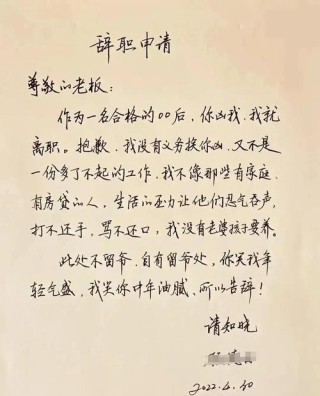 辞职申请
尊敬的老板：
作为一名合格的00后，你凶我，我就
离职。抱歉，我没有义务挨你凶，又不是
一份多了不起的工作，我不像那些有家庭，
有房贷的人，生活的压力让他们忍气吞声，
打不还手，骂不还口，我没有老婆孩子要养。
此处不留爷，自有留爷处，你笑我年
轻气盛，我笑你中年油腻，所以告辞！
请知晓
2022.6.10